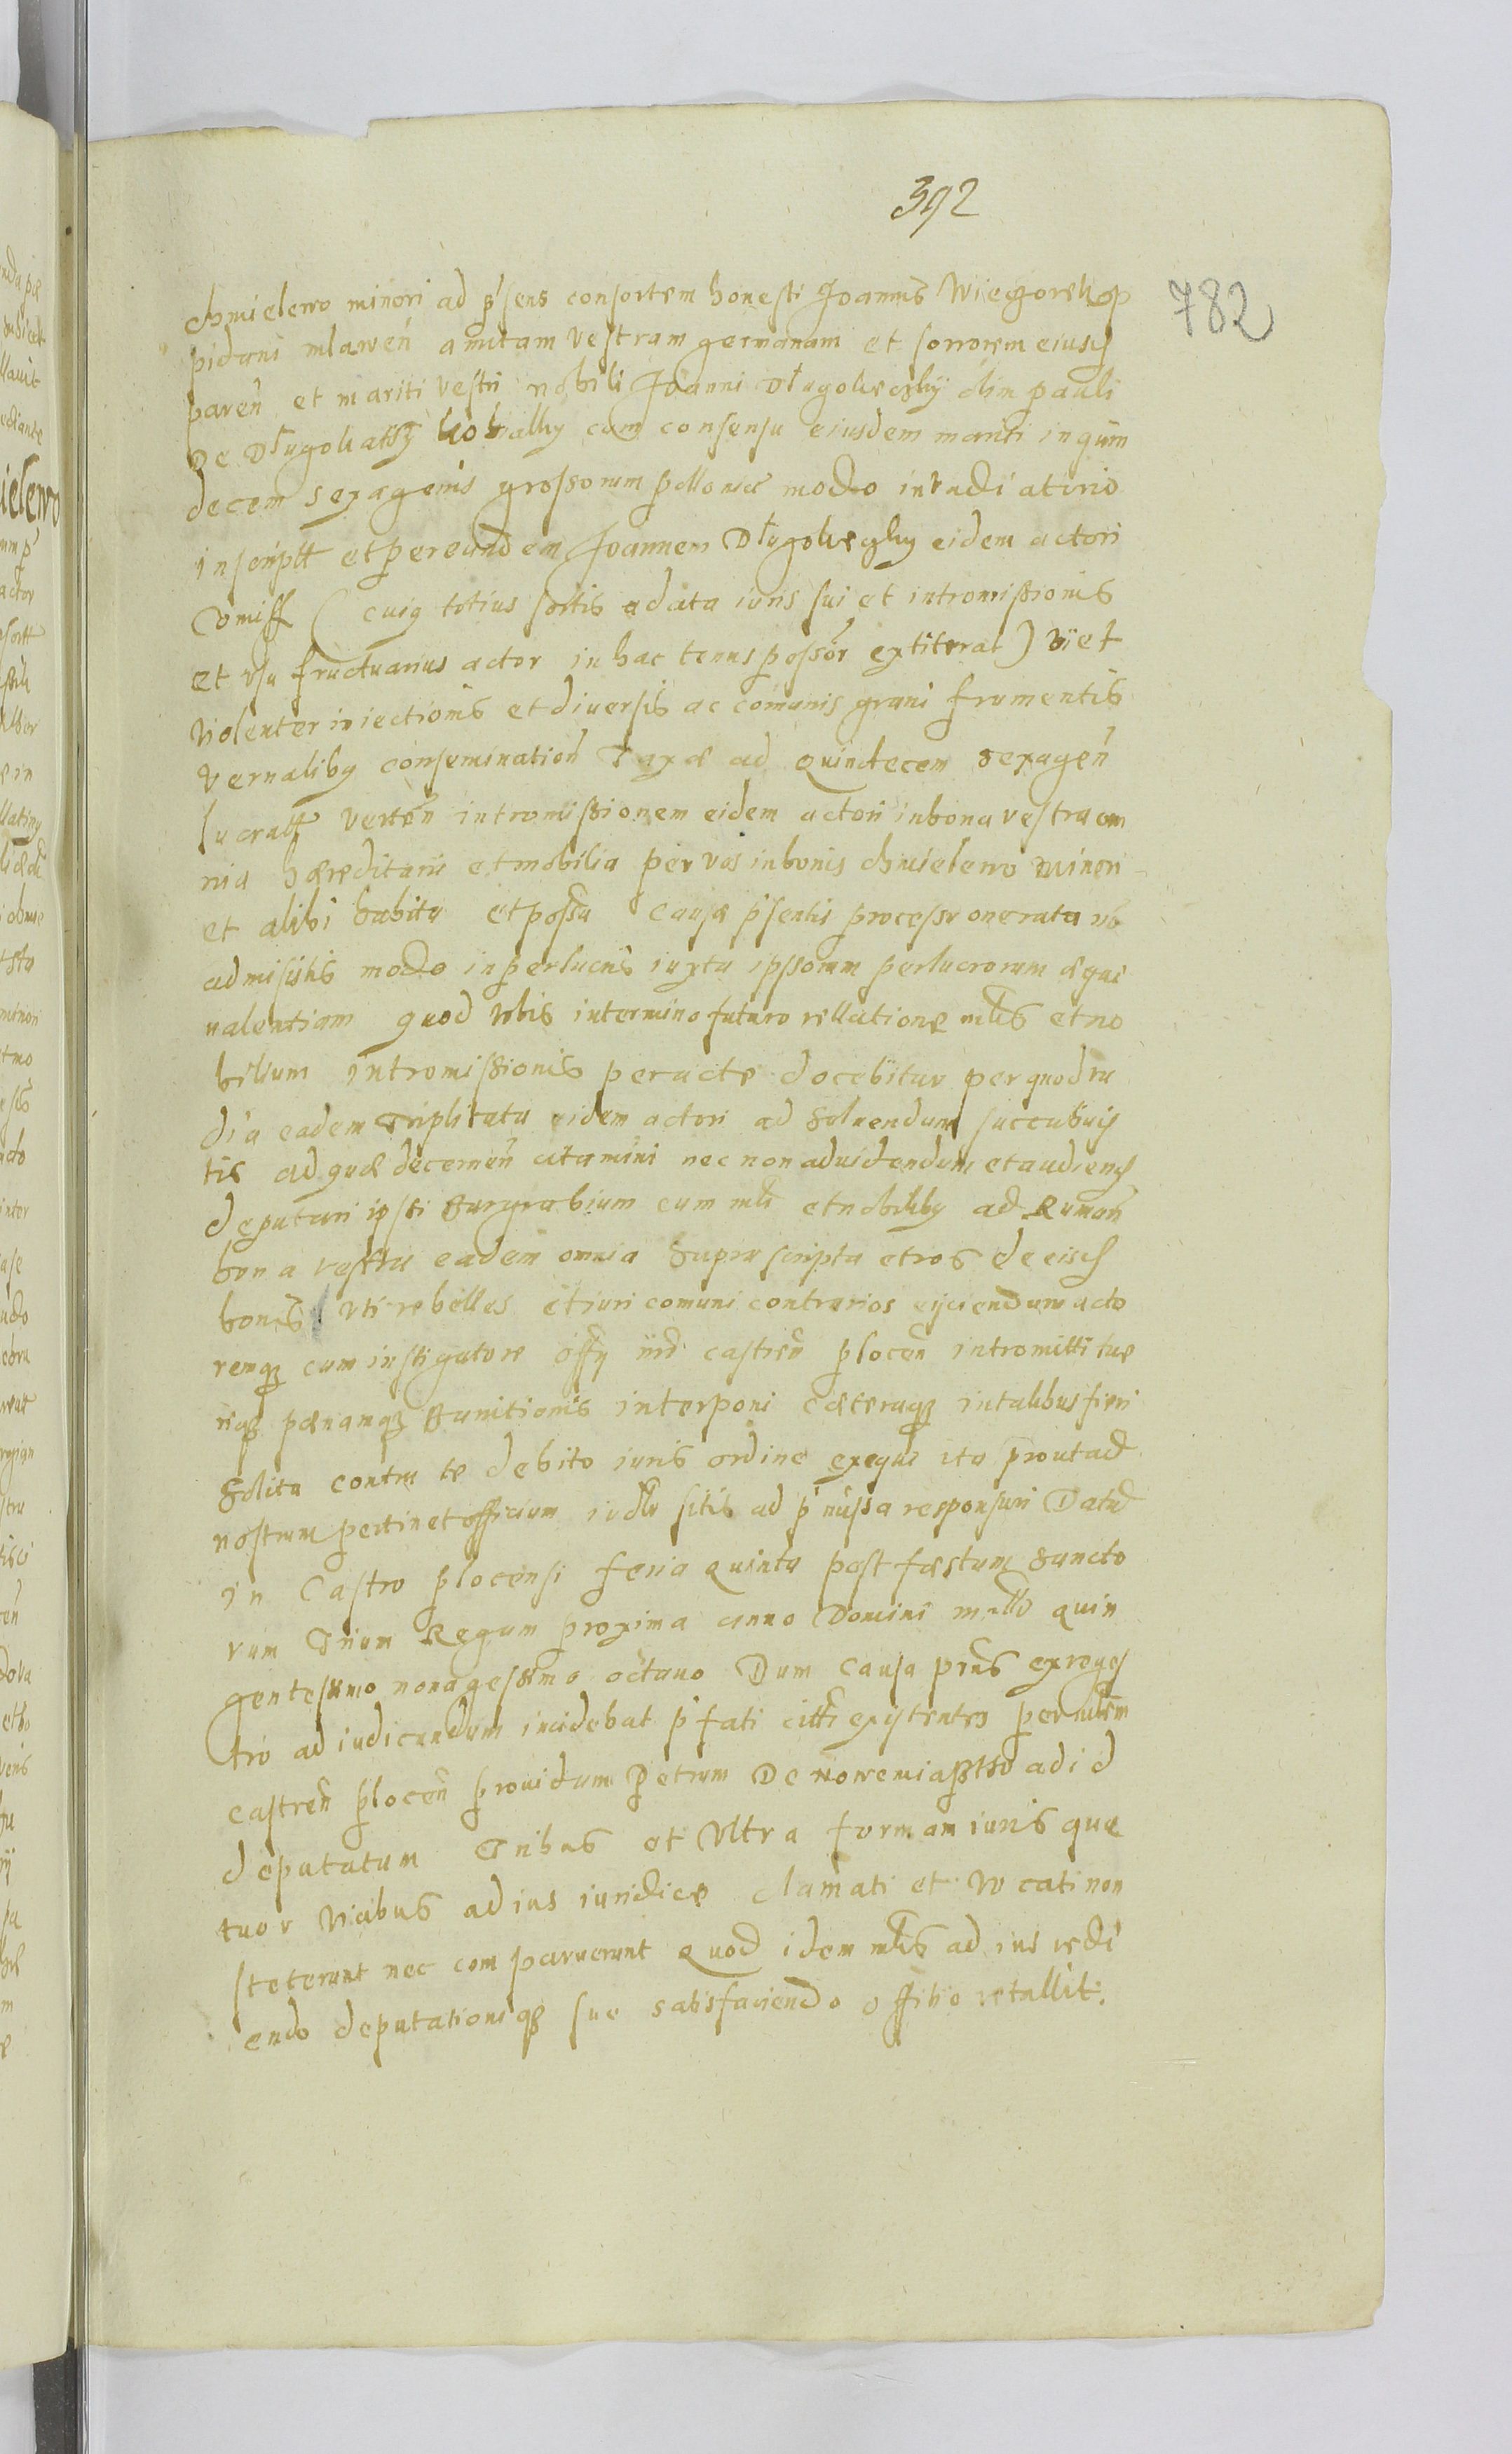 392
782
chmielewo minori ad p'sens consortem honesti Joannis Wiegorek op
pidani mlawen̄ amitam vestram germanam et sororem eiusd
paren̄ et mariti vestri nobili Joanni Długolęczky olim pauli
De Długolaky kobialky cum consensu eiusdem mariti in quin
decem sexagenis grossorum pollonice modo invadiatorio
inscriptt et per eundem Joannem Długolęczky eidem actori
(cuiq totius sortis a data iuris sui et intromissionis
et usu fructuarius actor in hac tenus possor̄ extiterat) vi et
violenter iniectionis et diversis ac comunis grani frumentis
vernaliby consemination̄ Taxæ ad quindecem sexagen̄
lucratt verten̄ intromissionem eidem actori in bona vestra om
nia hæreditaria et mobilia per vos in bonis chmielewo minori
et alibi habita et possa causæ p'sentis processu onerata n̄
admisistis modo in perlucris iuxta ipssorum perlucrorum æque
valentiam quod vobis in termino futuro rellatione mlis et no
bilium intromissionis peractæ docebitur per quod va
dia eadem Triplicata eidem actori ad soluendum succubuis
tis ad quæ decernen̄ citamini nec non ad videndum et audiend
deputari ipsi Burgrabium cum mli et nobiliby ad Ruman̄
bona vestra eadem omnia supra scripta et vos de eisd
bonis vti rebelles et iuri comuni contrarios eijciendum acto
remq cum instigatore offij castren̄ plocen̄ intromitti tue
riq pænamq Bannitionis interponi cæteraq in talibus fieri
solita contra te debito iuris ordine exequi ita prout ad
nostrum pertinet officium sitis ad p'missa responsuri Datū
in Castro plocensi feria quinta post fæstum sancto
rum Trium Regum proxima anno Domini millo quin
gentesimo nonagessimo octavo Dum causa p'ns ex reges
tro ad iudicandum incidebat p'fati citti existentes per mlem
castren̄ plocen̄ providum Petrum De ad id
deputatum Tribus et Vltra formam iuris qua
tuor vicibus ad ius iuridice clamati et vocati non
steterunt nec comparuerunt quod idem mlis ad ius redi
endo deputationiq suæ satisfaciendo offitio retullit.